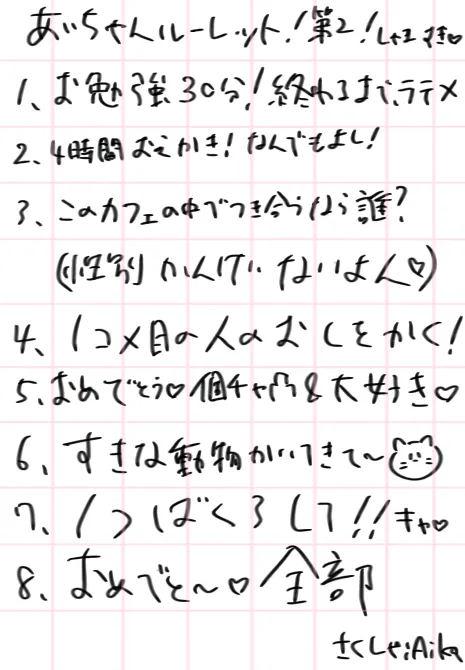 あいちゃんルーレット!第2!しゃまずき♡
1、お勉強30分!終わるまで、ラテメ
2、4時間おえかき!なんでもよし!
3、このカフェの中でつき合うなら誰?
(性別かんけいないよん♡)
4、1コメ目の人のおしをかく!
5、おめでとう♡個チャ凸&大好き♡
6、すきな動物かいてきて~
7、1つばくろして!!キャ♡
8、おめでと~♡全部
さくしゃ:Aika